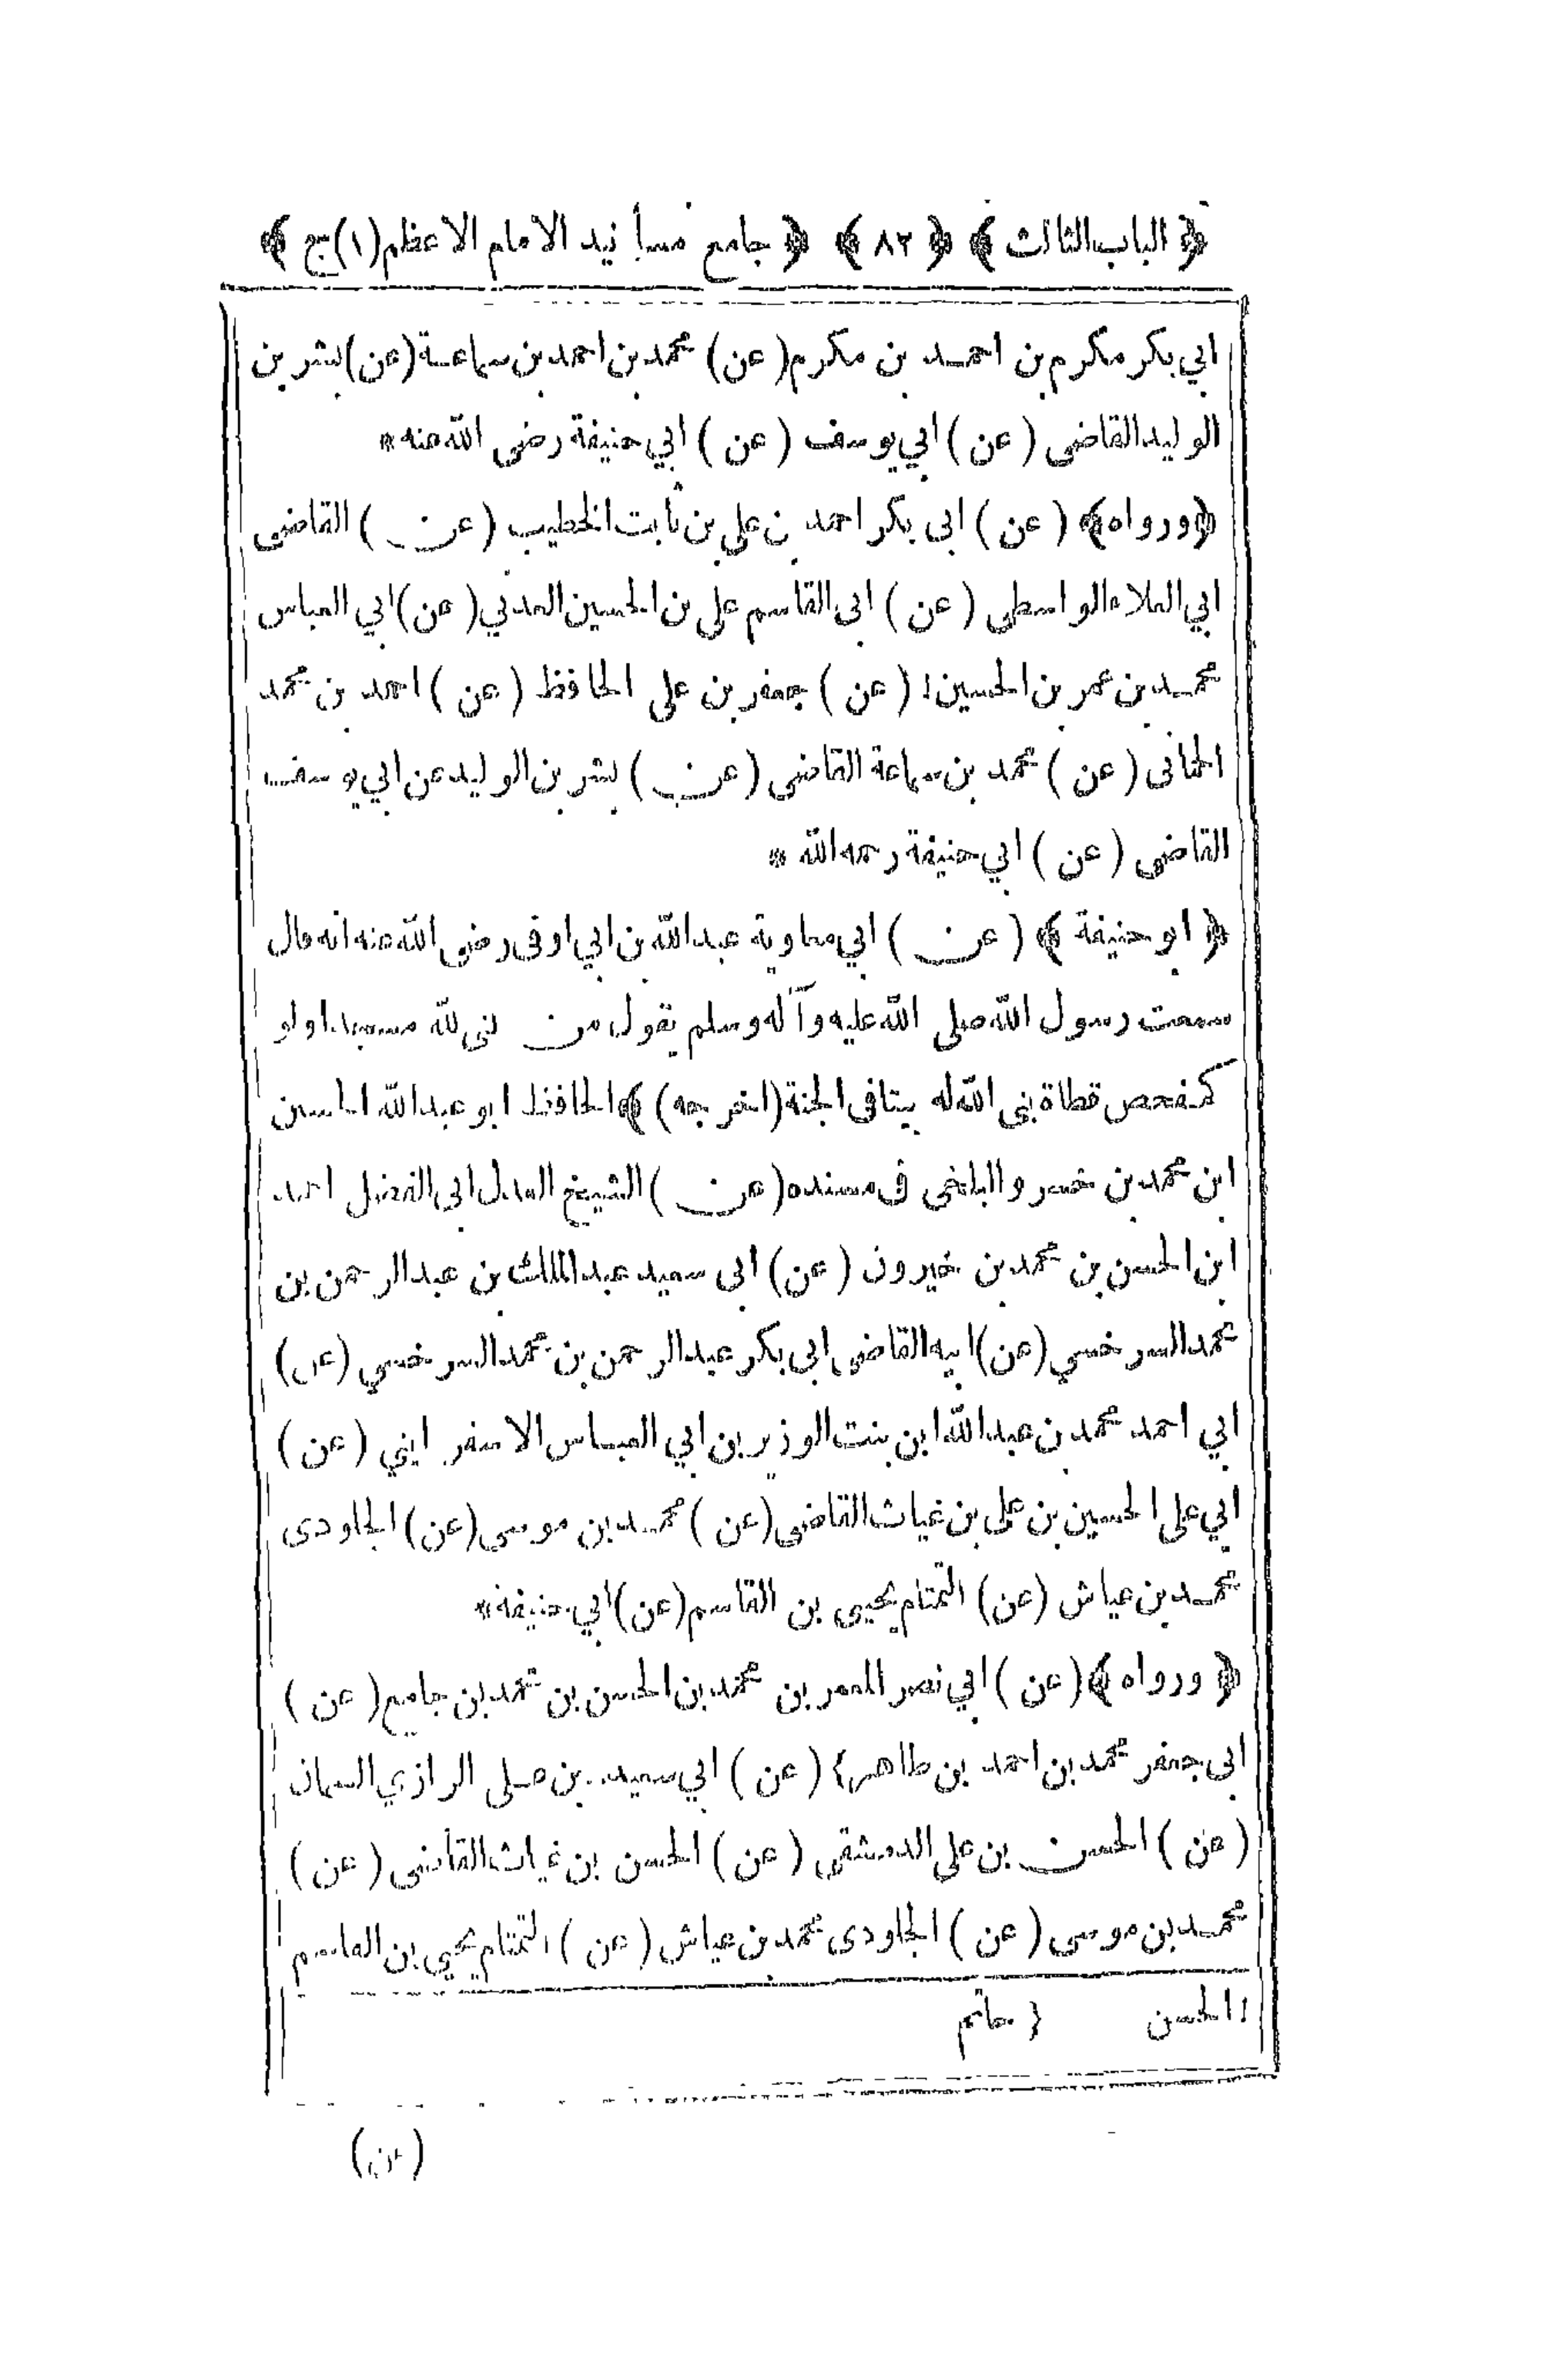 ﴿ الباب الثالث ﴾ ﴿ ٨٢ ﴾ ﴿ جامع مسانيد الامام الاعظم (١) ج ﴾
ابي بكر مكرم بن احمد بن مكرم (عن) محمد بن احمد بن سماعة (عن) بشر بن
الوليد القاضى (عن) ابي يوسف (عن) ابي حنيفة رضى الله عنه *
﴿ ورواه ﴾ (عن) ابى بكر احمد بن علي بن ثابت الخطيب (عن) القاضى
ابي العلاء الواسطى (عن) ابى القاسم على بن الحسين العدني (عن) ابي العباس
محمد بن عمر بن الحسين ١ (عن) جعفر بن على الحافظ (عن) احمد بن محمد
الحمانى (عن) محمد بن سماعة القاضى (عن) بشر بن الوليد عن ابي يوسف
القاضى (عن) ابي حنيفة رحمه الله *
﴿ ابو حنيفة ﴾ (عن) ابي معاوية عبد الله بن ابي اوفى رضى الله عنه انه قال
سمعت رسول الله صلى الله عليه وآله وسلم يقول من بنى لله مسجدا ولو
كمفحص قطاة بنى الله له بيتا فى الجنة (اخرجه) ﴾ الحافظ ابو عبد الله الحسين
ابن محمد بن خسرو البلخى فى مسنده (عن) الشيخ العدل ابي الفضل احمد
ابن الحسن بن محمد بن خيرون (عن) ابى سعيد عبد الملك بن عبد الرحمن بن
محمد السرخسي (عن) ابيه القاضى ابى بكر عبد الرحمن بن محمد السرخسي (عن)
ابي احمد محمد بن عبد الله ابن بنت الوزير بن ابي العباس الاسفرايني (عن)
ابي على الحسين بن على بن غياث القاضى (عن) محمد بن موسى (عن) الجلودى
محمد بن عياش (عن) التمتام يحيى بن القاسم (عن) ابي حنيفة *
﴿ ورواه ﴾ (عن) ابي نصر المعمر بن محمد بن الحسن بن محمد بن جامع (عن)
ابى جعفر محمد بن احمد بن طاهر ٢ (عن) ابي سعيد بن على الرازي السمان
(عن) الحسن بن على الدمشقى (عن) الحسن بن غياث القاضى (عن)
محمد بن موسى (عن) الجلودى محمد بن عياش (عن) التمتام يحيى بن القاسم
١ الحسن ٢ حاتم
(عن)